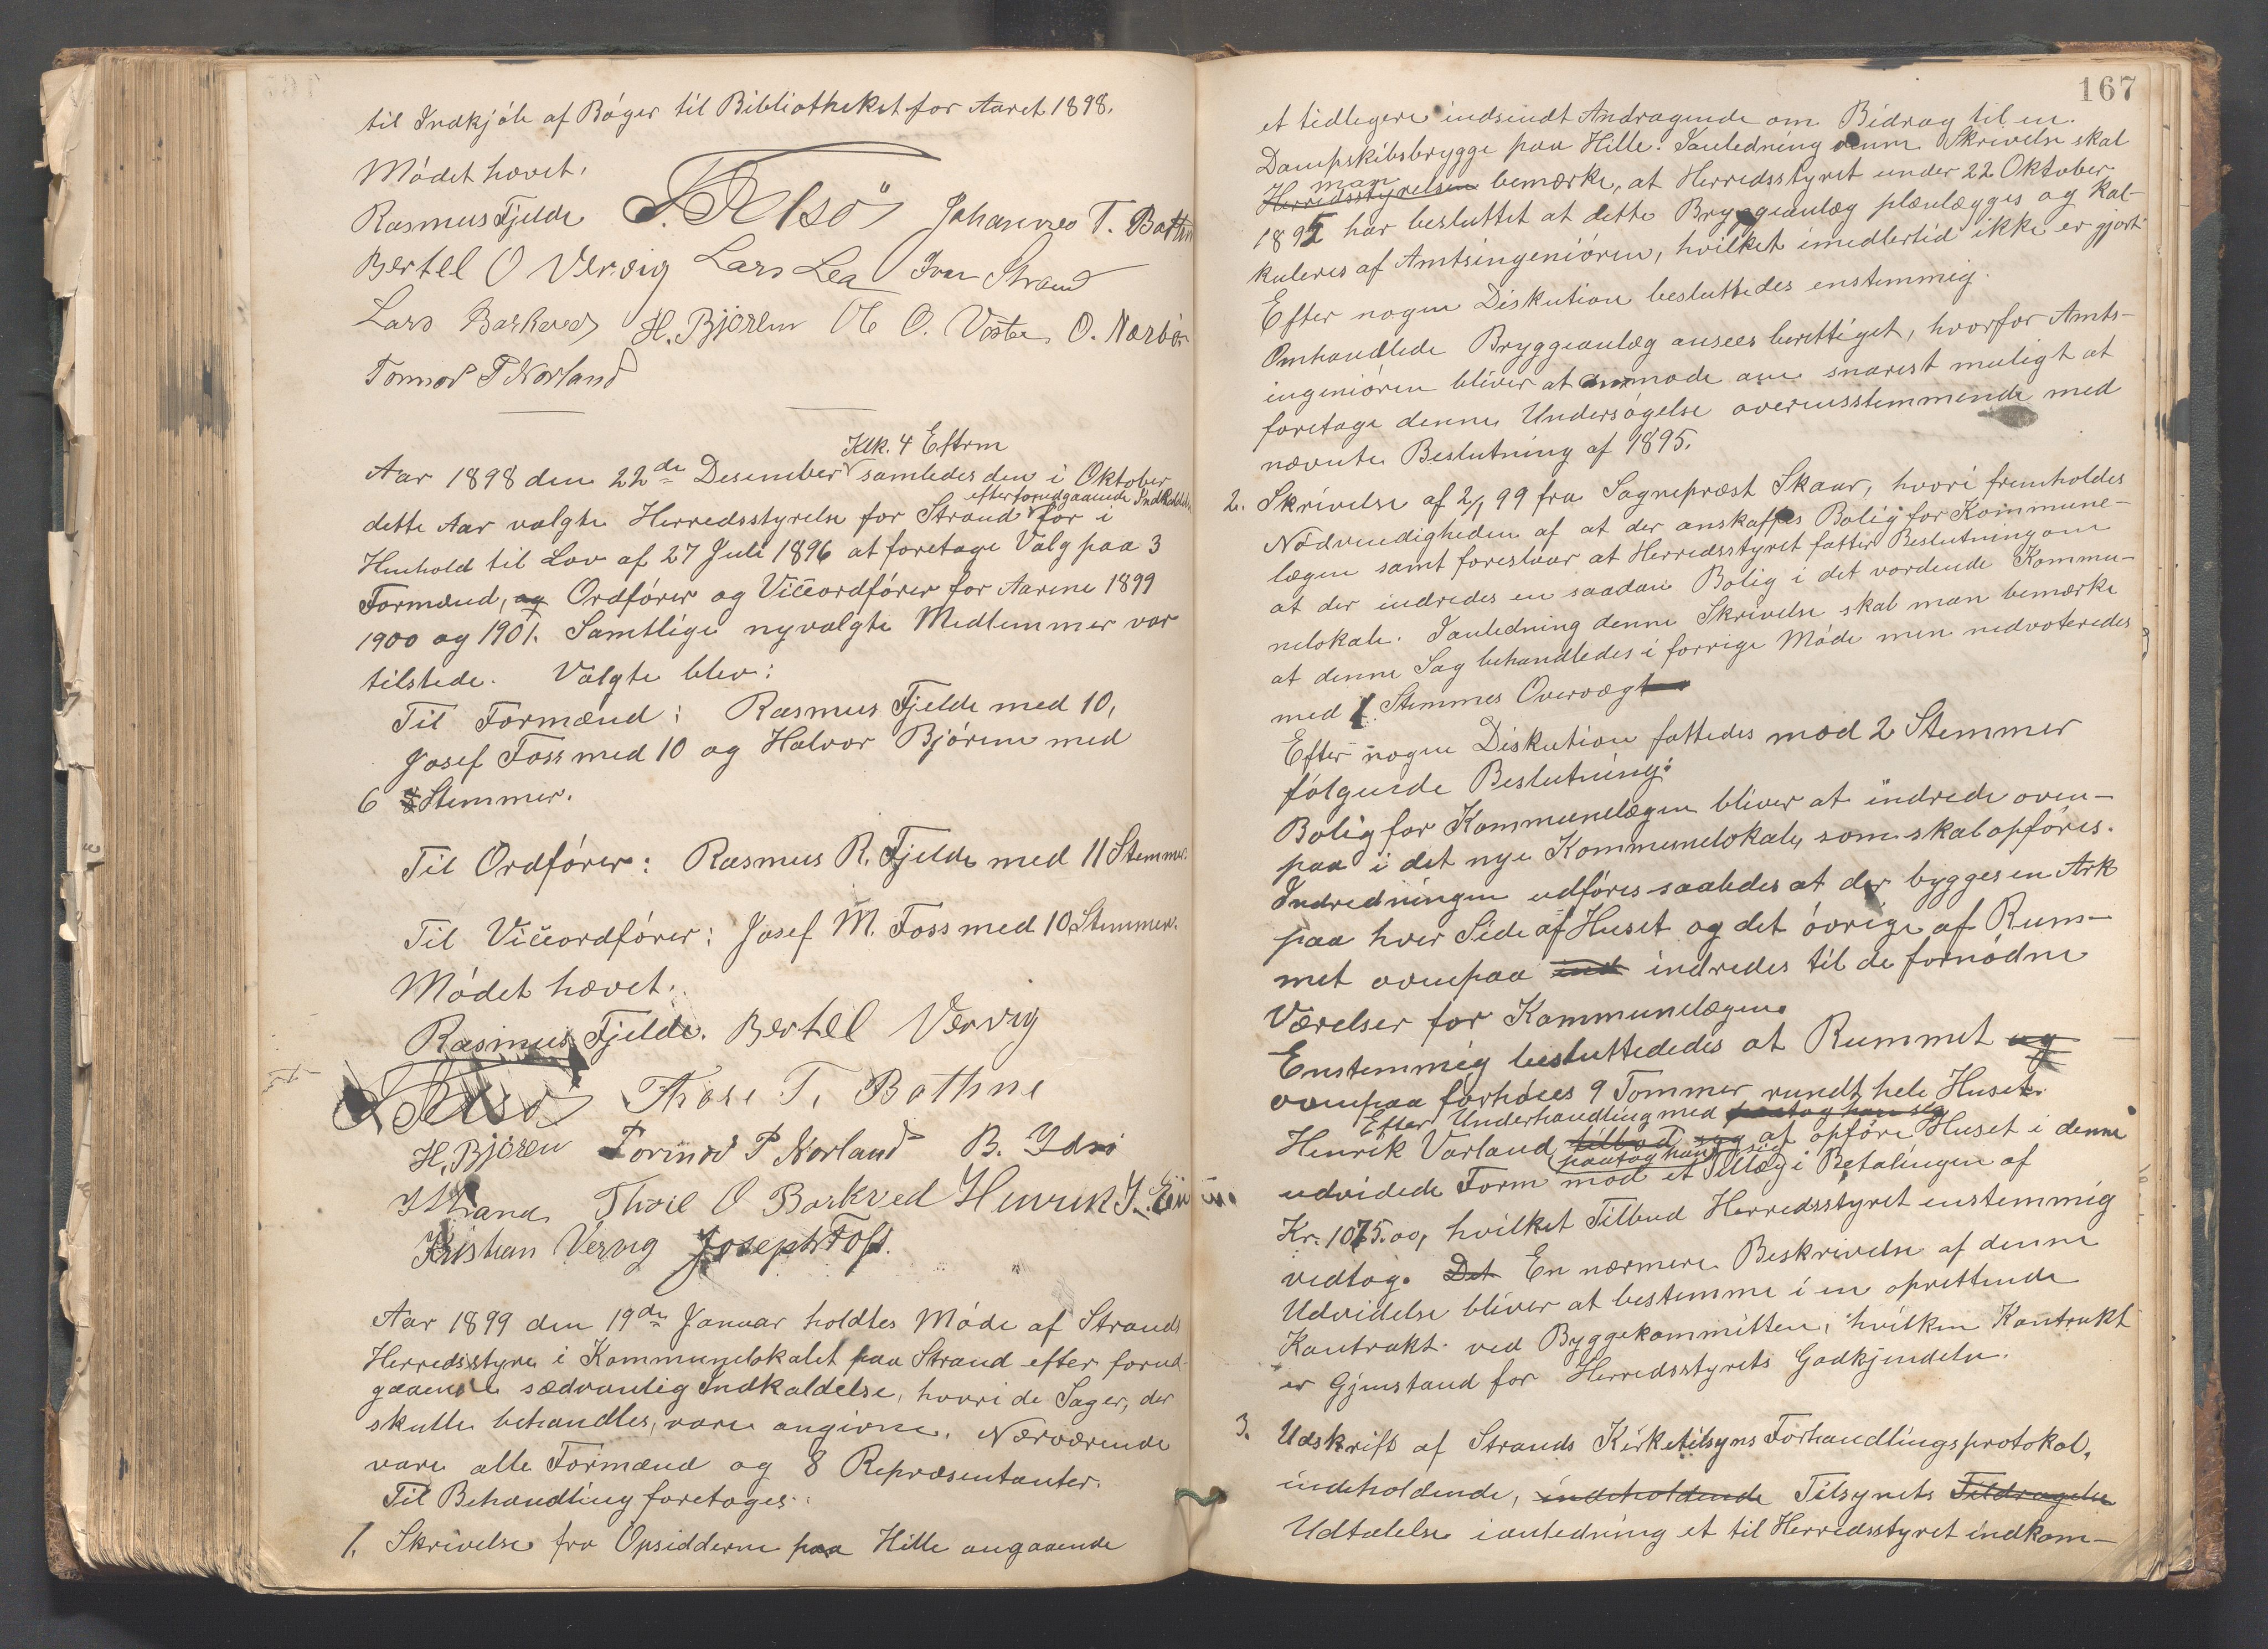 til Indkjøb af Bøger til Bibliotheket for Aaret 1898.
Mødet hævet.
Rasmus Fjelde Johannes T. Bothn
Bertel O Vervig Lars Lea Iver Strand
Lars Barkved H. Bjøren Ole O. Vostbø O. Norbø
Tormod P Norland
Klk. 4 Eftrm
Aar 1898 den 22de Desember samledes den i Oktober
efter forudgaaende Indkaldelse
dette Aar valgte Herredsstyrelse for Strand for i
Henhold til Lov af 27 Juli 1896 at foretage Valg paa 3
Formænd, og Ordfører og Viceordfører for Aarene 1899
1900 og 1901. Samtlige nyvalgte Medlemmer var
tilstede. Valgte blev:
Til Formænd: Rasmus Fjelde med 10,
Josef Foss med 10 og Halvor Bjøren med
6 Stemmer.
Til Ordfører: Rasmus R. Fjelde med 11 Stemmer.
Til Viceordfører: Josef M. Foss med 10 Stemmer.
Mødet hævet.
Rasmus Fjelde. Bertel Vervig
Thore T. Bothne
H. Bjøren Tormod P Norland B. Idsø
I Strand Thore O Barkved Henrik J.
Kristian Vervig Joseph Foss.
Aar 1899 den 19de Januar holdtes Møde af Strands
Herredsstyre i Kommunelokalet paa Strand efter forud-
gaaende sædvanlig Indkaldelse, hvori de Sager, der
skulle behandles, vare angivne. Nærværende
vare alle Formænd og 8 Repræsentanter.
Til Behandling foretoges:
1. Skrivelse fra Opsidderne paa Hille angaaende
167
et tidligere indsendt Andragende om Bidrag til en
Dampskibsbrygge paa Hille. Ianledning denne Skrivelse skal
man
Herredsstyrelsen bemærke, at Herredsstyret under 22 Oktober
1895 har besluttet at dette Bryggeanlæg planlægges og kal-
kuleres af Amtsingeniøren, hvilket imedlertid ikke er gjort
Efter nogen Diskution besluttedes enstemmig.
Omhandlede Bryggeanlæg ansees berettiget, hvorfor Amts-
ingeniøren bliver at anmode om snarest muligt at
foretage denne Undersøgelse overensstemmende med
nævnte Beslutning af 1895.
2. Skrivelse af 2/1 99 fra Sognepræst Skaar, hvori fremholdes
Nødvendigheden af at der anskaffes Bolig for Kommune-
lægen samt foreslaar at Herredsstyret fatter Beslutning om
at der indredes en saadan Bolig i det vordende Kommu-
nelokale. Ianledning denne Skrivelse skal man bemærke
at denne Sag behandledes i forrige Møde men nedvoteredes
med 1 Stemmes Overvægt
Efter nogen Diskution fattedes mod 2 Stemmer
følgende Beslutning:
Bolig for Kommunelægen bliver at indrede oven-
paa i det nye Kommunelokale, som skal opføres.
Indredningen udføres saaledes at der bygges en Ark
paa hver Side af Huset og det øvrige af Rum-
met ovenpaa ind indredes til de fornødne
Værelser for Kommunelægen.
Enstemmig besluttededes at Rummet og
ovenpaa forhøies 9 Tommer rundt hele Huset.
Efter Underhandling med paatog han sig
Henrik Varland tilbød sig at opføre Huset i denne
paatog han sig
udvidede Form mod et Tillæg i Betalingen af
Kr. 1075.00, hvilket Tilbud Herredsstyret enstemmig
vedtog. Det En nærmere Beskrivelse af denne
Udvidelse bliver at bestemme i en oprettende
Kontrakt ved Byggekommitteen, hvilken Kontrakt
er Gjenstand for Herredsstyrets Godkjendelse.
3. Udskrift af Strands Kirketilsyns Forhandlingsprotokol,
indeholdende, indeholdende Tilsynets Tildragelse
Udtalelse ianledning et til Herredsstyret indkom-